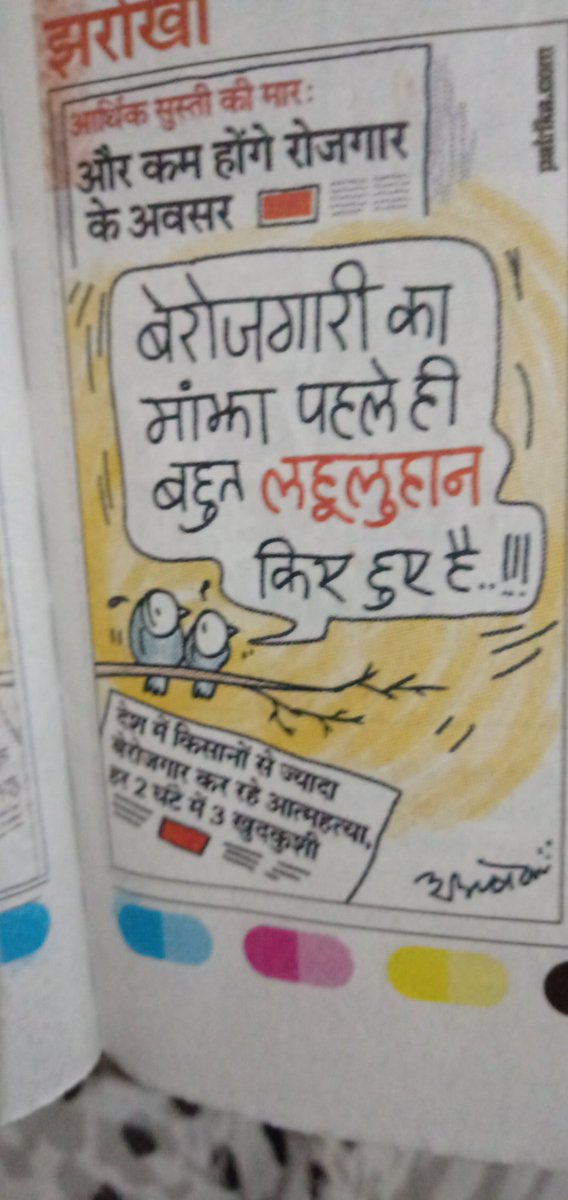 झरोखा
patrika.com
आर्थिक सुस्ती की मार:
और कम होंगे रोजगार
के अवसर
बेरोजगारी का
मांझा पहले ही
बहुत लहूलुहान
किए हुए है..!!!
देश में किसानों से ज्यादा
बेरोजगार कर रहे आत्महत्या,
हर 2 घंटे में 3 खुदकुशी